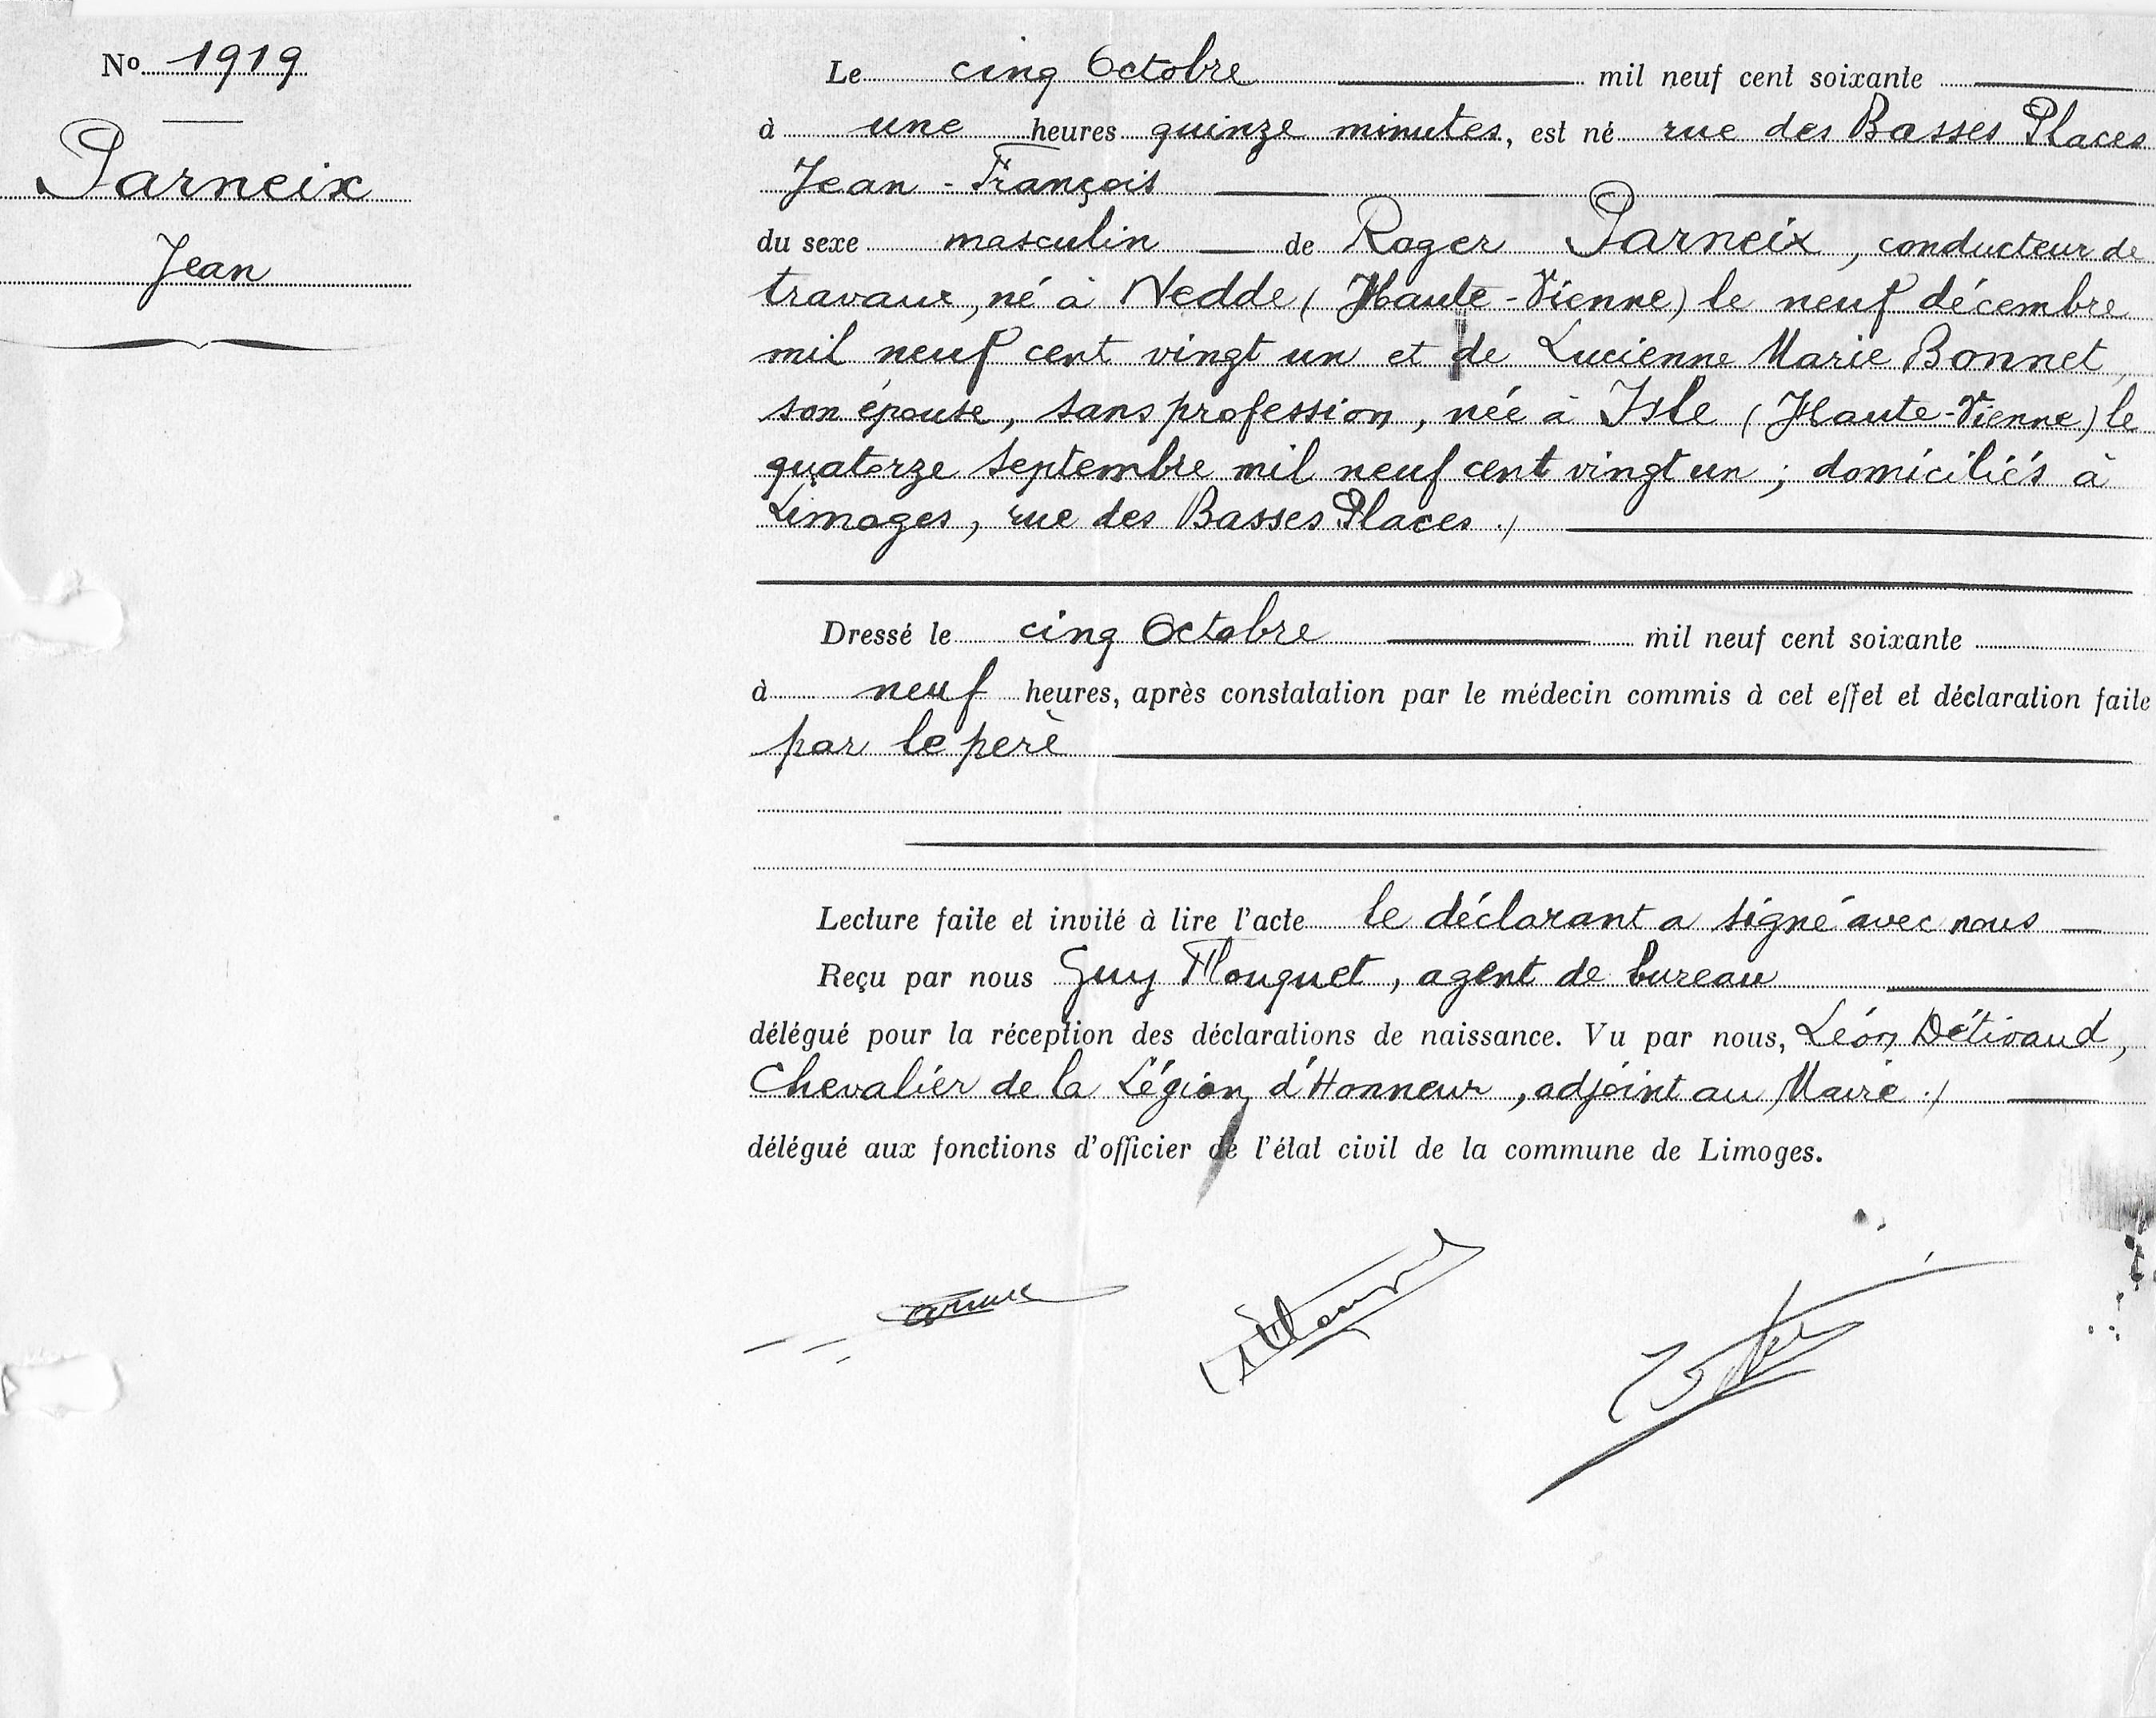 No 1919
Parneix
Jean
Le cinq Octobre mil neuf cent soixante
à une heures quinze minutes, est né rue des Basses Places
Jean-François
du sexe masculin de Roger Parneix, conducteur de
travaux, né à Nedde (Haute-Vienne) le neuf décembre
mil neuf cent vingt un et de Lucienne Marie Bonnet,
son épouse, sans profession, née à Isle (Haute-Vienne) le
quatorze septembre mil neuf cent vingt un ; domiciliés à
Limoges, rue des Basses Places ./
Dressé le cinq Octobre mil neuf cent soixante
à neuf heures, après constatation par le médecin commis à cet effet et déclaration faite
par le père
Lecture faite et invité à lire l'acte le déclarant a signé avec nous
Reçu par nous Guy Flouquet, agent de bureau
délégué pour la réception des déclarations de naissance. Vu par nous, Léon Détivaud,
Chevalier de la Légion d'Honneur, adjoint au Maire ./
délégué aux fonctions d'officier de l'état civil de la commune de Limoges.